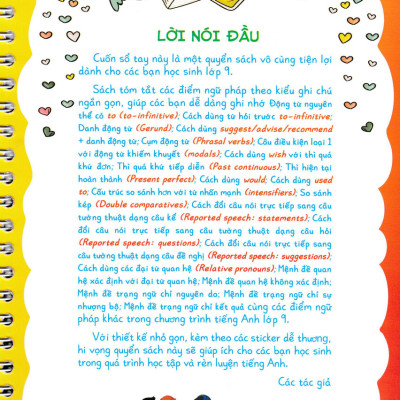 LỜI NÓI ĐẦU
Cuốn sổ tay này là một quyển sách vô cùng tiện lợi
dành cho các bạn học sinh lớp 9.
Sách tóm tắt các điểm ngữ pháp theo kiểu ghi chú
ngắn gọn, giúp các bạn dễ dàng ghi nhớ Động từ nguyên
thể có to (to-infinitive); Cách dùng từ hỏi trước to-infinitive;
Danh động từ (Gerund); Cách dùng suggest/advise/recommend
+ danh động từ; Cụm động từ (Phrasal verbs); Câu điều kiện loại 1
với động từ khiếm khuyết (modals); Cách dùng wish với thì quá
khứ đơn; Thì quá khứ tiếp diễn (Past continuous); Thì hiện tại
hoàn thành (Present perfect); Cách dùng would; Cách dùng used
to; Cấu trúc so sánh hơn với từ nhấn mạnh (intensifiers); So sánh
kép (Double comparatives); Cách đổi câu nói trực tiếp sang câu
tường thuật dạng câu kể (Reported speech: statements); Cách
đổi câu nói trực tiếp sang câu tường thuật dạng câu hỏi
(Reported speech: questions); Cách đổi câu nói trực tiếp sang
câu tường thuật dạng câu đề nghị (Reported speech: suggestions);
Cách dùng các đại từ quan hệ (Relative pronouns); Mệnh đề quan
hệ xác định với đại từ quan hệ; Mệnh đề quan hệ không xác định;
Mệnh đề trạng ngữ chỉ nguyên do; Mệnh đề trạng ngữ chỉ sự
nhượng bộ; Mệnh đề trạng ngữ chỉ kết quả cùng các điểm ngữ
pháp khác trong chương trình tiếng Anh lớp 9.
Với thiết kế nhỏ gọn, kèm theo các sticker dễ thương,
hi vọng quyển sách này sẽ giúp ích cho các bạn học sinh
trong quá trình học tập và rèn luyện tiếng Anh.
Các tác giả